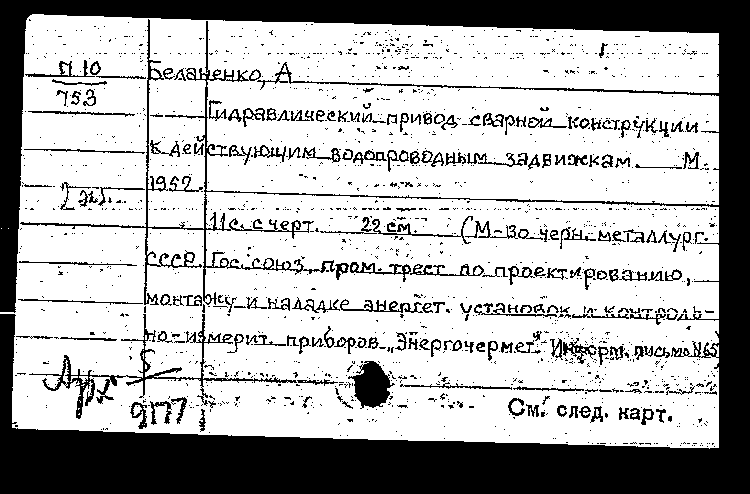 П 10
753
Беланенко, А
Гидравлический привод сварной конструкции
к действующим водопроводным задвижкам. М.
1952.
2 экз.
11с. с черт. 22 см. (М-во черн. металлург.
СССР. Гос. союз. пром. трест по проектированию,
монтажу и наладке энергет. установок и контроль-
но-измерит. приборов „Энергочермет". Информ. письмо №65
Арх
5
9177
См. след. карт.